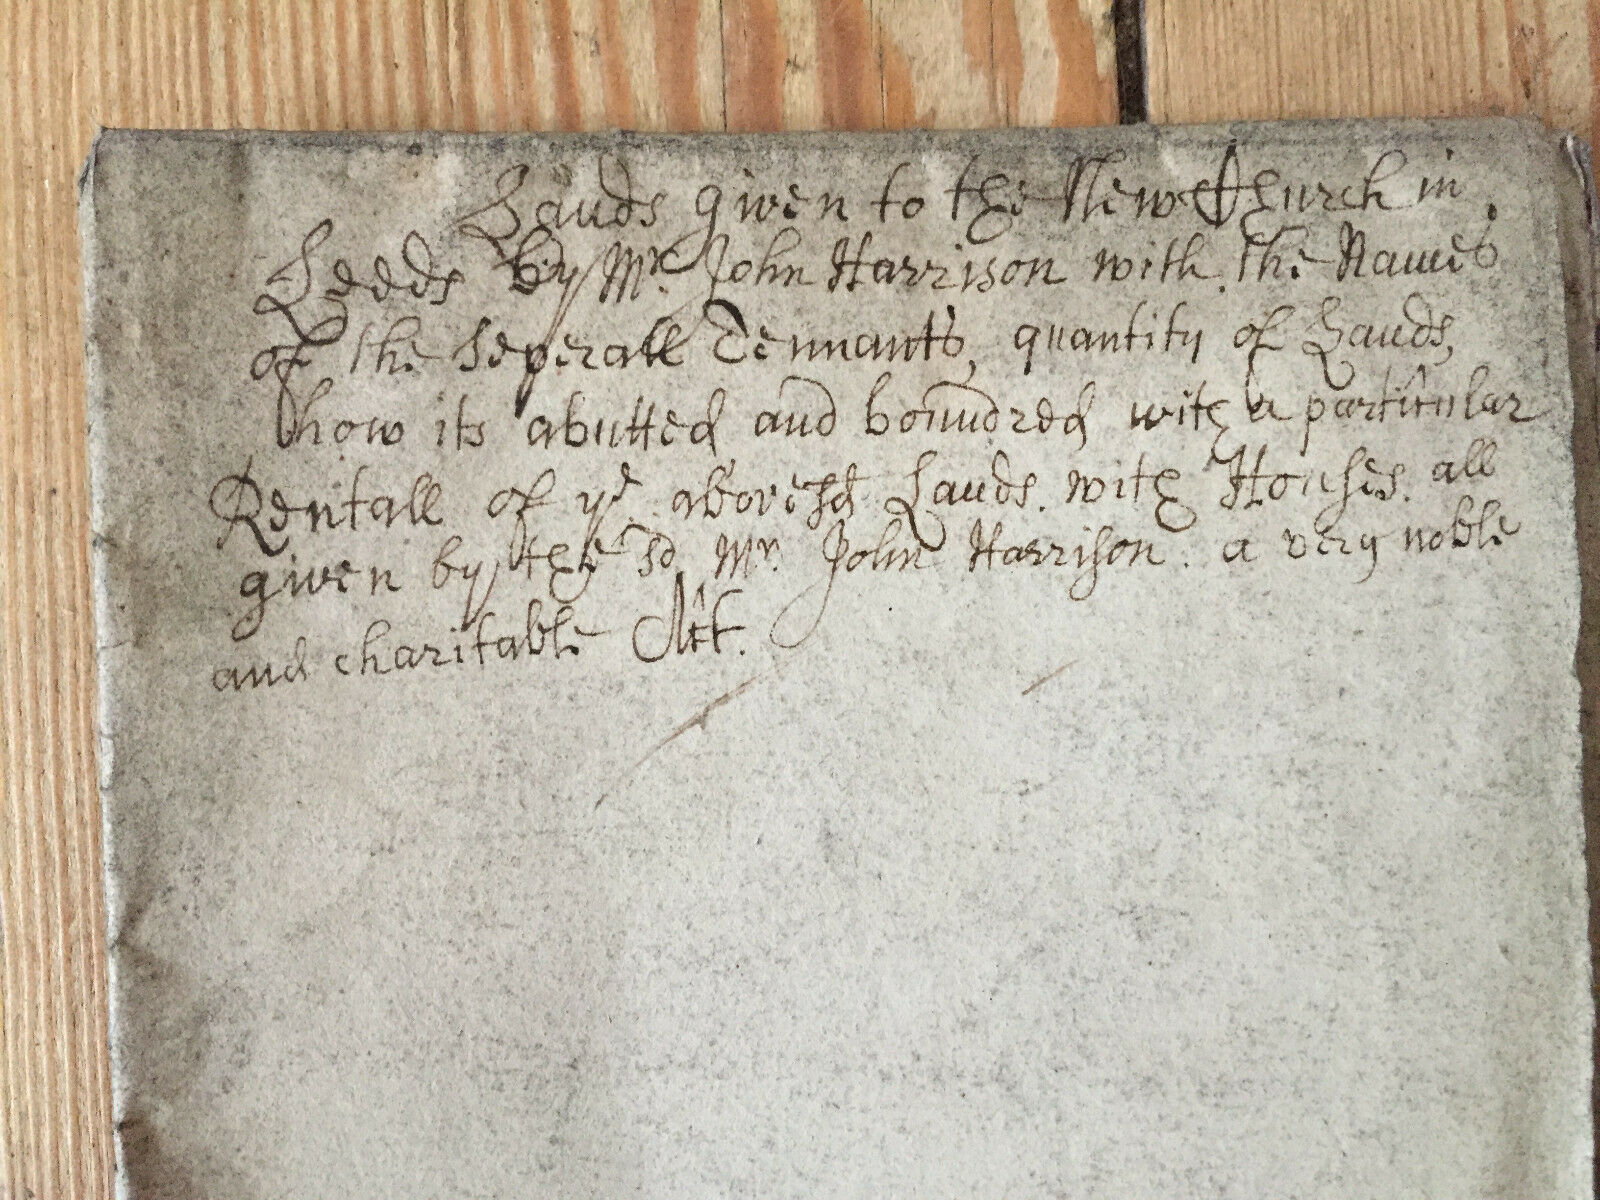 Lands given to the New Church in
Leeds by Mr. John Harrison with the Names
of the seperall Tennants, quantity of Lands,
how its abutted and boundred with a particular
Rentall of ye abovesd Lands. with Houses. all
given by the sd Mr. John Harrison. a very noble
and charitable Act.